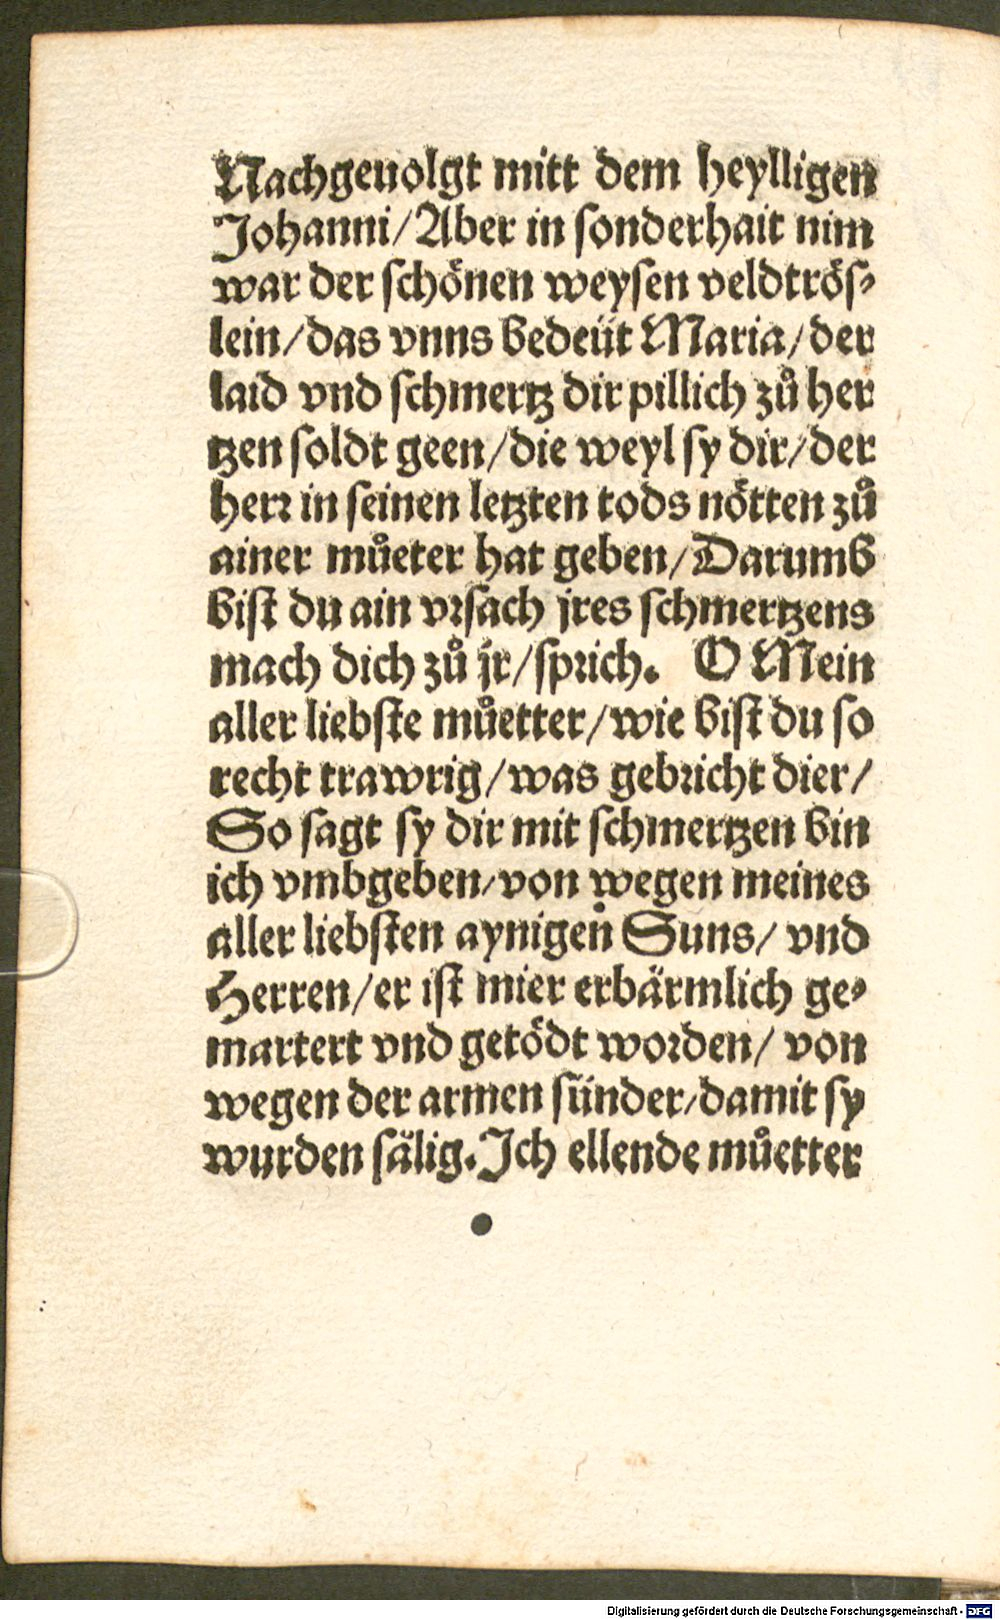 Nachgeuolgt mitt dem heylligen
Johanni/Aber in sonderhait nim
war der schönen weysen veldtrös⸗
lein/das vnns bedeüt Maria/der
laid vnd schmertz dir pillich zů her
tzen soldt geen/die weyl sy dir/der
herr in seinen letzten tods nötten zů
ainer můeter hat geben/Darumb
bist du ain vrsach jres schmertzens
mach dich zů jr/sprich. O Mein
aller liebste můetter/wie bist du so
recht trawrig/was gebricht dier/
So sagt sy dir mit schmertzen bin
ich vmbgeben/von wegen meines
aller liebsten aynigen Suns/ vnd
Herren/er ist mier erbärmlich ge⸗
martert vnd getödt worden/ von
wegen der armen sünder/damit sy
wurden sälig.Ich ellende můetter
Digitalisierung gefördert durch die Deutsche Forschungsgemeinschaft - DFG